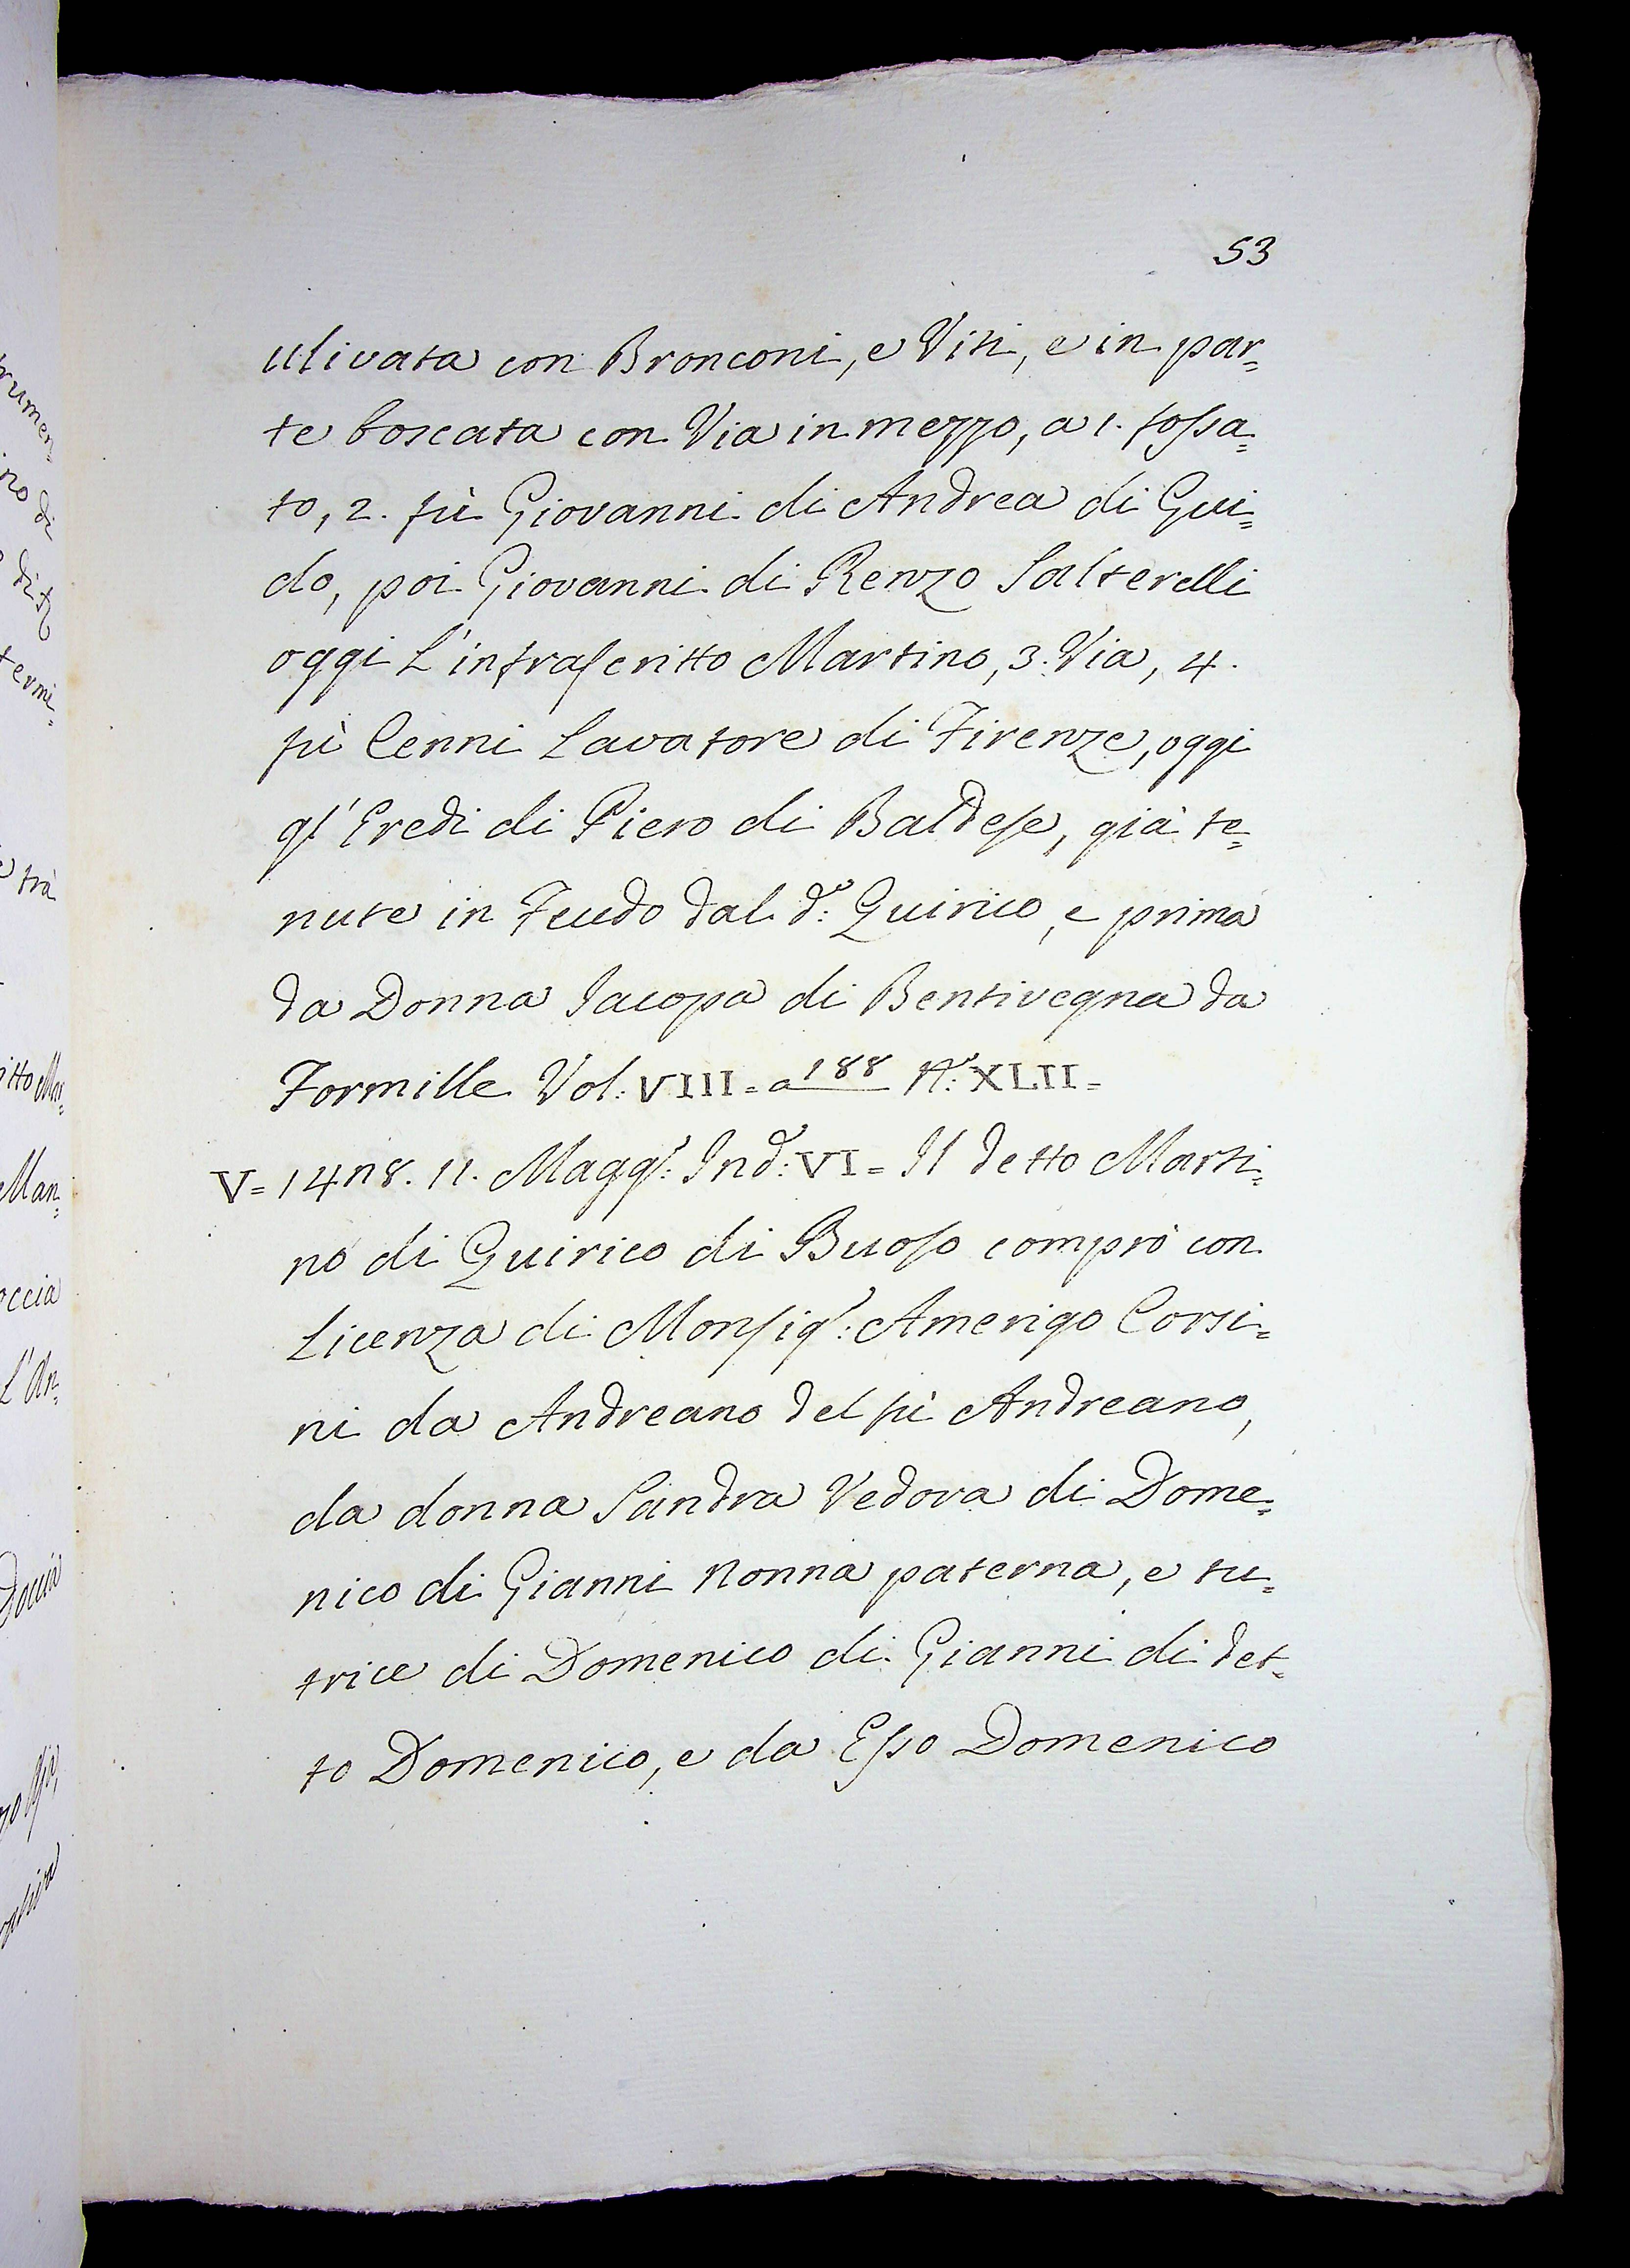 53
ulivata con Bronconi, e Viti, e in par=
te boscata con Via in mezzo, a 1. fossa=
to, 2. fù Giovanni di Andrea di Gui=
do, poi Giovanni di Renzo Salterelli
oggi L'infrascritto Martino, 3. Via, 4.
fù Cenni Lavatore di Firenze, oggi
gl'Eredi di Piero di Baldese, già te=
nute in Feudo dal d.º: Quirico, e prima
da Donna Iacopa di Bentivegna da
Formille Vol: VIII = a 188 Nº: XLII =
V = 1428. 11. Magg.º: Ind.e: VI = Il detto Marti=
no di Quirico di Buoso comprò con
Licenza di Monsig.r: Amerigo Corsi=
ni da Andreano del fù Andreano,
da donna Sandra Vedova di Dome=
nico di Gianni Nonna paterna, e tu=
trice di Domenico di Gianni di det=
to Domenico, e da Esso Domenico